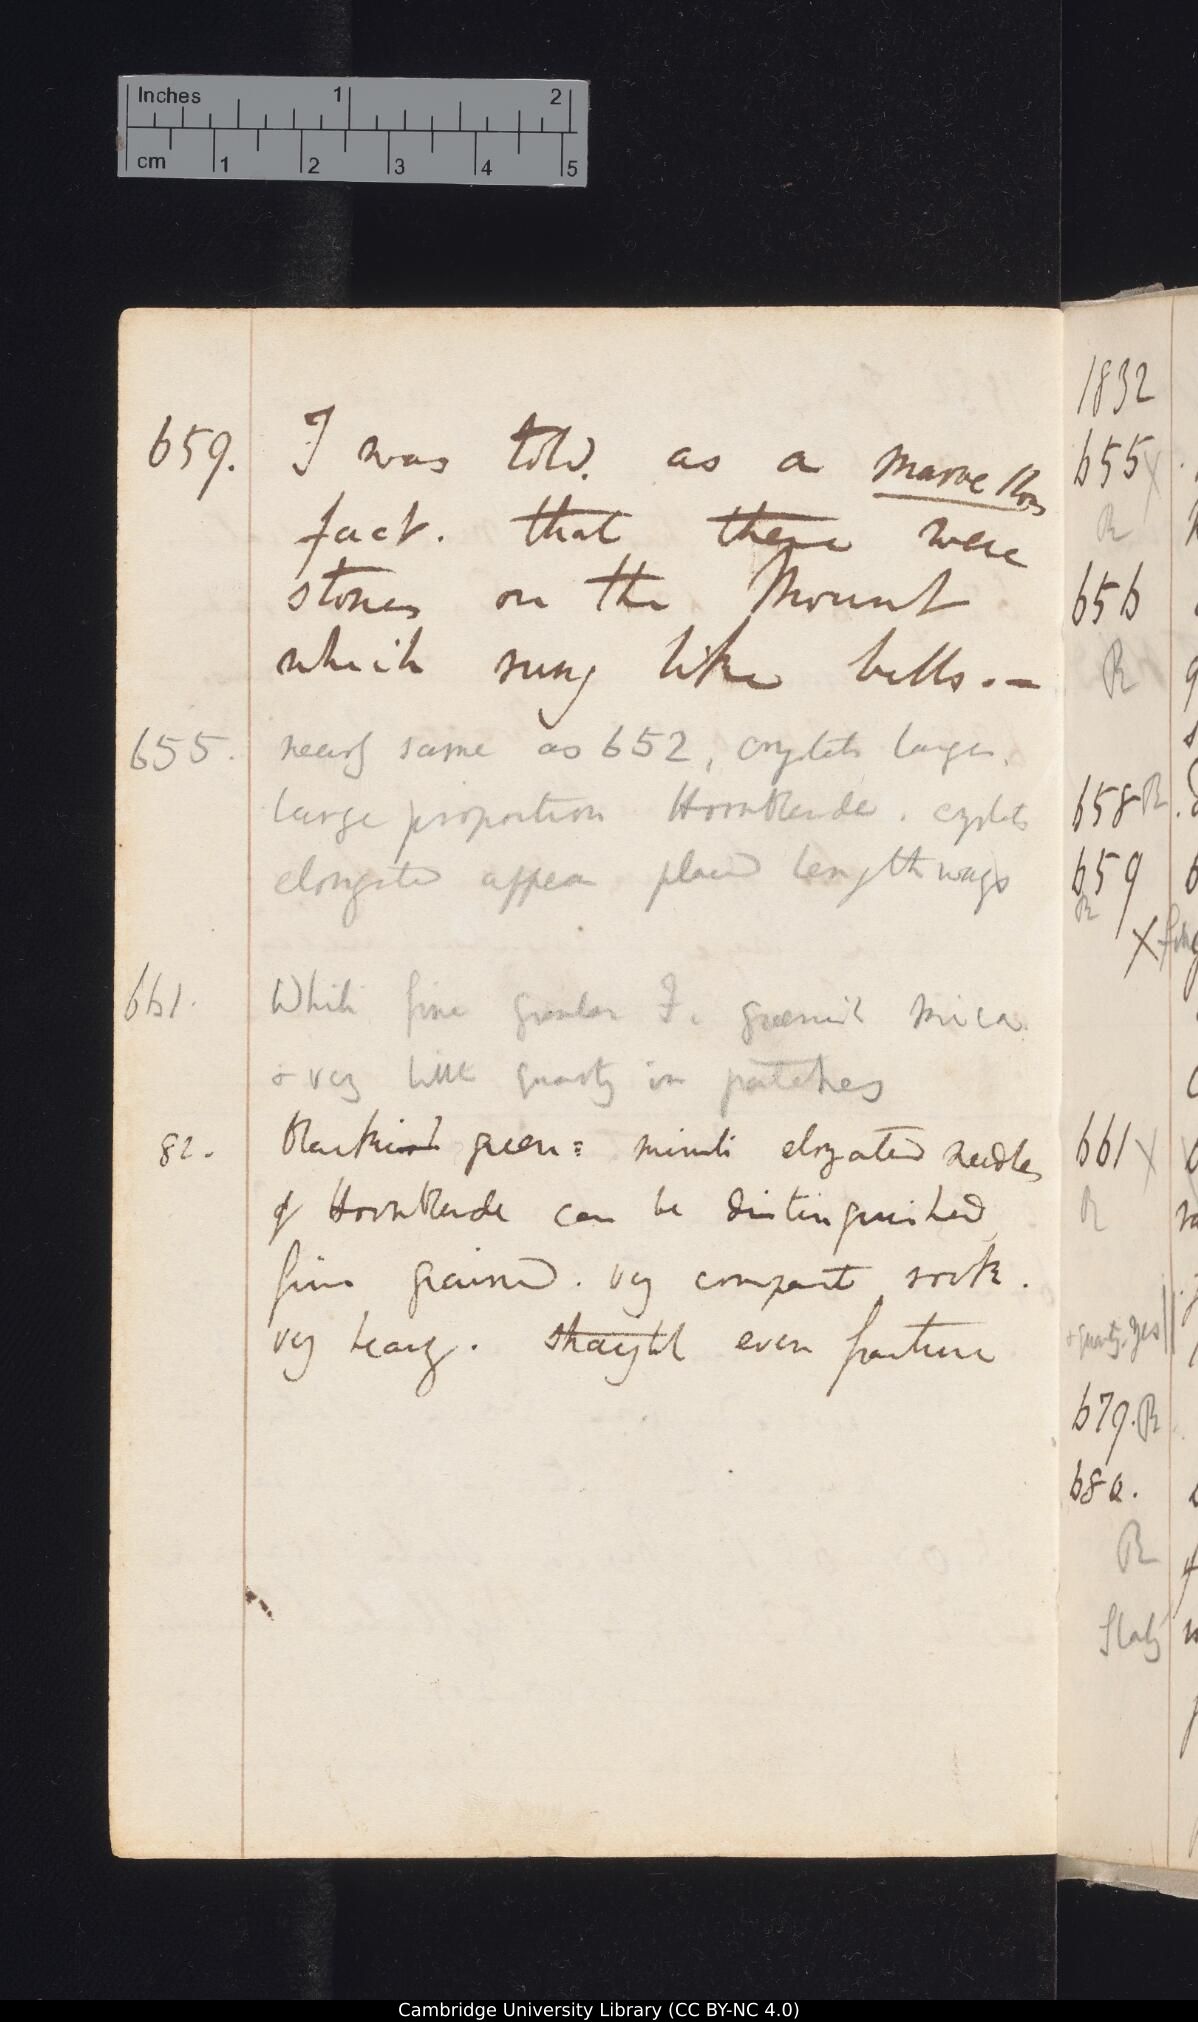 Inches 1 2
cm 1 2 3 4 5
659. I was told. as a marvellous
fact. that there were
stones on the Mount
which rung like bells.—
655. nearly same as 652, crystals larger.
large proportion Hornblende. crystals
elongated appear placed lengthways
661. White fine granular F. greenish mica
& very little quartz in patches
82. Blackish green: minute elongated needles
of Hornblende can be distinguished
fine grained. very compact rock.
very heavy. straight even fracture
1832
655 X
R
656
R
658 R
659
R
X
661 X
R
& quartz. yes
679. R
680.
R
Slaty
Cambridge University Library (CC BY-NC 4.0)